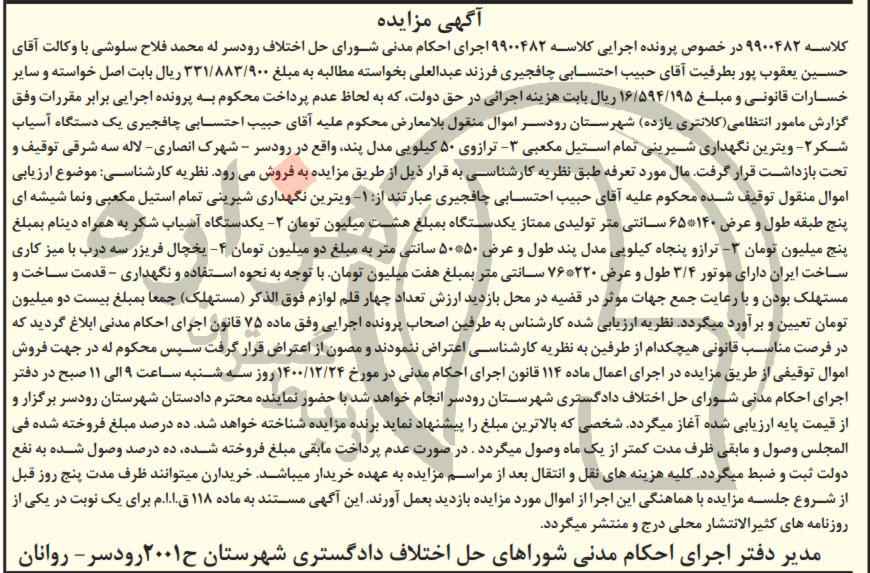 آگهی مزایده
کلاسه ۹۹۰۰۴۸۲ در خصوص پرونده اجرایی کلاسه ۹۹۰۰۴۸۲ اجرای احکام مدنی شورای حل اختلاف رودسر له محمد فلاح سلوشی با وکالت آقای
حسین یعقوب پور بطرفیت آقای حبیب احتسابی چافجیری فرزند عبدالعلی بخواسته مطالبه به مبلغ ۳۳۱/۸۸۳/۹۰۰ ریال بابت اصل خواسته و سایر
خسارات قانونی و مبلغ ۱۶/۵۹۴/۱۹۵ ریال بابت هزینه اجرائی در حق دولت، که به لحاظ عدم پرداخت محکوم به پرونده اجرایی برابر مقررات وفق
گزارش مامور انتظامی(کلانتری یازده) شهرستان رودسر اموال منقول بلامعارض محکوم علیه آقای حبیب احتسابی چافجیری یک دستگاه آسیاب
شکر۲- ویترین نگهداری شیرینی تمام استیل مکعبی ۳- ترازوی ۵۰ کیلویی مدل پند، واقع در رودسر – شهرک انصاری- لاله سه شرقی توقیف و
تحت بازداشت قرار گرفت. مال مورد تعرفه طبق نظریه کارشناسی به قرار ذیل از طریق مزایده به فروش می رود. نظریه کارشناسی: موضوع ارزیابی
اموال منقول توقیف شده محکوم علیه آقای حبیب احتسابی چافجیری عبارتند از: ۱- ویترین نگهداری شیرینی تمام استیل مکعبی ونما شیشه ای
پنج طبقه طول و عرض ۱۴۰*۶۵ سانتی متر تولیدی ممتاز یکدستگاه بمبلغ هشت میلیون تومان ۲- یکدستگاه آسیاب شکر به همراه دینام بمبلغ
پنج میلیون تومان ۳- ترازو پنجاه کیلویی مدل پند طول و عرض ۵۰*۵۰ سانتی متر به مبلغ دو میلیون تومان ۴- یخچال فریزر سه درب با میز کاری
ساخت ایران دارای موتور ۳/۴ طول و عرض ۲۲۰*۷۶ سانتی متر بمبلغ هفت میلیون تومان. با توجه به نحوه استفاده و نگهداری – قدمت ساخت و
مستهلک بودن و با رعایت جمع جهات موثر در قضیه در محل بازدید ارزش تعداد چهار قلم لوازم فوق الذکر (مستهلک) جمعا بمبلغ بیست دو میلیون
تومان تعیین و برآورد میگردد. نظریه ارزیابی شده کارشناس به طرفین اصحاب پرونده اجرایی وفق ماده ۷۵ قانون اجرای احکام مدنی ابلاغ گردید که
در فرصت مناسب قانونی هیچکدام از طرفین به نظریه کارشناسی اعتراض ننمودند و مصون از اعتراض قرار گرفت سپس محکوم له در جهت فروش
اموال توقیفی از طریق مزایده در اجرای اعمال ماده ۱۱۴ قانون اجرای احکام مدنی در مورخ ۱۴۰۰/۱۲/۲۴ روز سه شنبه ساعت ۹ الی ۱۱ صبح در دفتر
اجرای احکام مدنی شورای حل اختلاف دادگستری شهرستان رودسر انجام خواهد شد با حضور نماینده محترم دادستان شهرستان رودسر برگزار و
از قیمت پایه ارزیابی شده آغاز میگردد. شخصی که بالاترین مبلغ را پیشنهاد نماید برنده مزایده شناخته خواهد شد. ده درصد مبلغ فروخته شده فی
المجلس وصول و مابقی ظرف مدت کمتر از یک ماه وصول میگردد . در صورت عدم پرداخت مابقی مبلغ فروخته شده، ده درصد وصول شده به نفع
دولت ثبت و ضبط میگردد. کلیه هزینه های نقل و انتقال بعد از مراسم مزایده به عهده خریدار میباشد. خریدارن میتوانند ظرف مدت پنج روز قبل
از شروع جلسه مزایده با هماهنگی این اجرا از اموال مورد مزایده بازدید بعمل آورند. این آگهی مستند به ماده ۱۱۸ ق.ا.ا.م برای یک نوبت در یکی از
روزنامه های کثیرالانتشار محلی درج و منتشر میگردد.
مدیر دفتر اجرای احکام مدنی شوراهای حل اختلاف دادگستری شهرستان ح۲۰۰۱رودسر- روانان